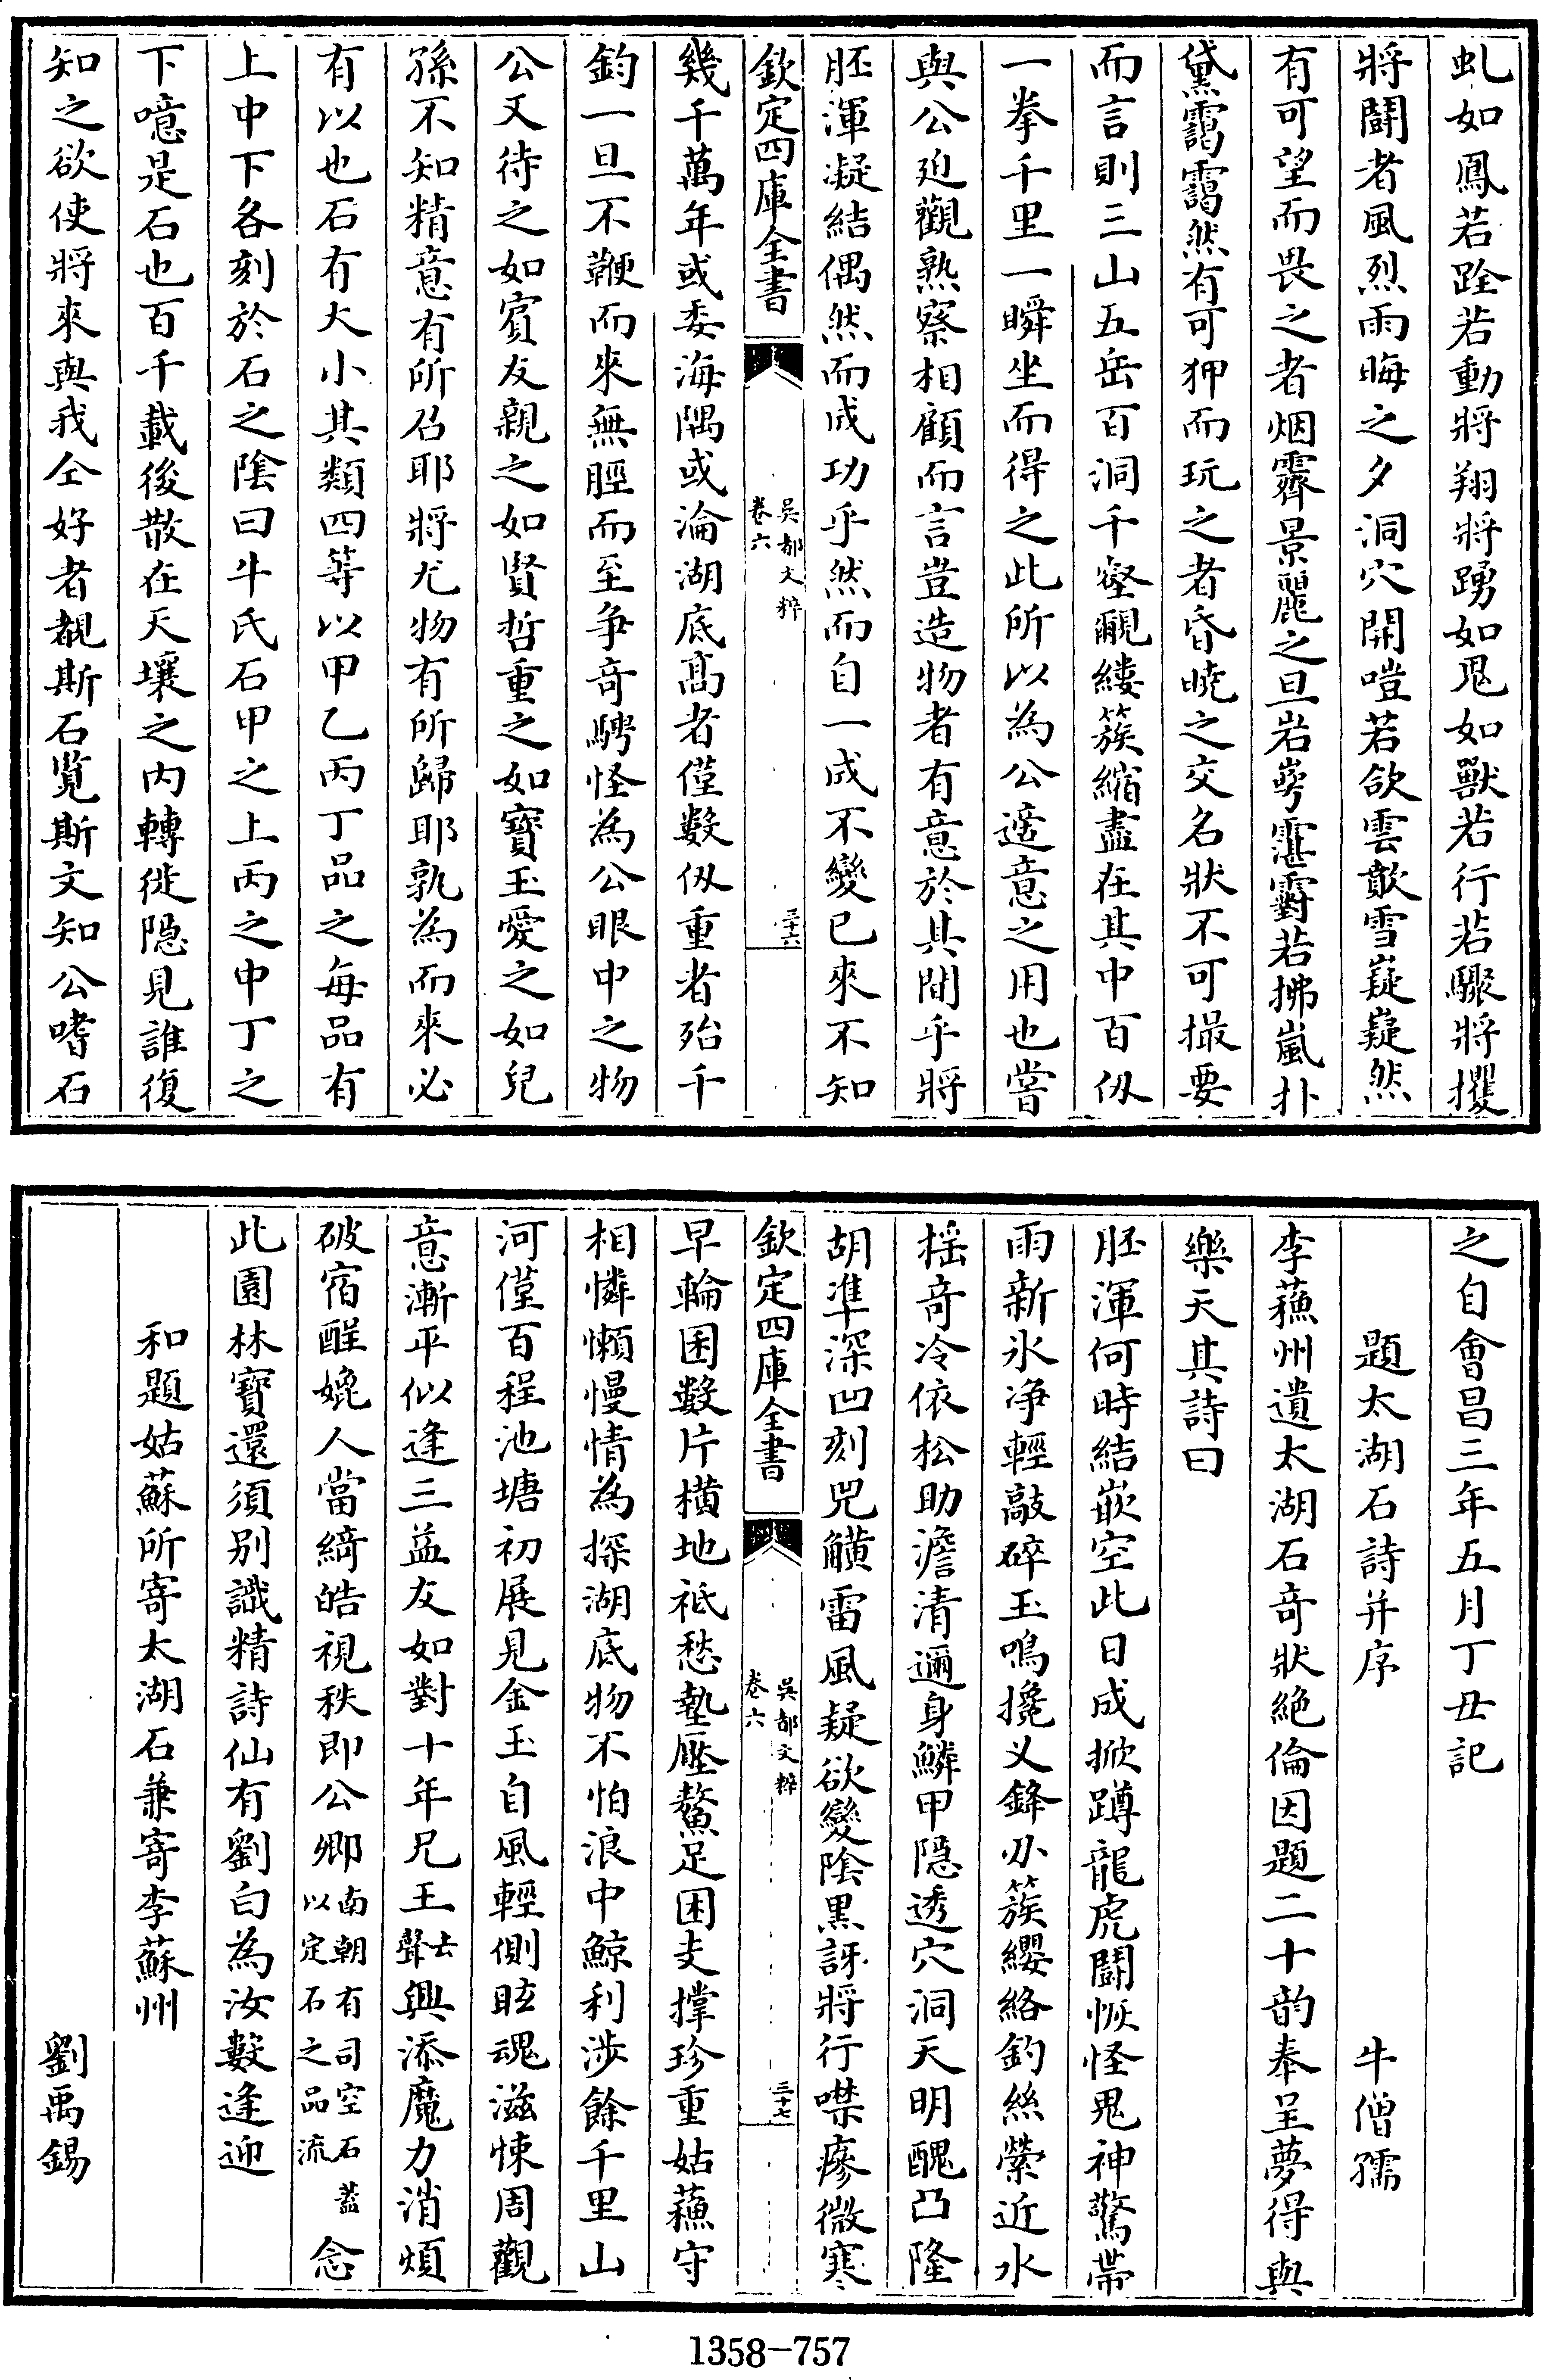 虬如鳳若跧若動將翔將踴如鬼如獸若行若驟將攫
將鬪者風烈雨晦之夕洞穴開嗑若欱雲歕雪嶷嶷然
有可望而畏之者烟霽景麗之旦岩崿霮䨴若拂嵐扑
黛靄靄然有可狎而玩之者昏曉之交名狀不可撮要
而言則三山五岳百洞千壑覼縷簇縮盡在其中百仭
一拳千里一瞬坐而得之此所以為公適意之用也嘗
與公廹觀熟察相顧而言豈造物者有意於其間乎將
胚渾凝結偶然而成功乎然而自一成不變已來不知
欽定四庫全書
吳都文粹
卷六
三十六
幾千萬年或委海隅或淪湖底髙者僅數仭重者殆千
鈞一旦不鞭而來無脛而至争竒騁怪為公眼中之物
公又待之如賔友親之如賢哲重之如寶玉愛之如兒
孫不知精意有所召耶將尤物有所歸耶孰為而來必
有以也石有大小其類四等以甲乙丙丁品之每品有
上中下各刻於石之隂曰牛氏石甲之上丙之中丁之
下噫是石也百千載後散在天壤之内轉徙隠見誰復
知之欲使將來與我仝好者覩斯石覧斯文知公嗜石
之自會昌三年五月丁丑記
題太湖石詩并序
牛僧孺
李蘓州遺太湖石竒狀絶倫因題二十韵奉呈夢得與
樂天其詩曰
胚渾何時結嵌空此日成掀蹲龍虎鬪恢怪鬼神驚帶
雨新氷净輕敲碎玉鳴攙乂鋒刅簇纓絡釣絲縈近水
揺竒冷依松助澹清邇身鱗甲隠透穴洞天明醜凸隆
胡凖深凹刻兕觵雷風疑欲變隂黒訝將行噤㾕微寒
欽定四庫全書
吳都文粹
卷六
三十七
早輪囷數片横地祗愁墊壓鰲足困支撐珍重姑蘓守
相憐懶慢情為探湖底物不怕浪中鯨利涉餘千里山
河僅百程池塘初展見金玉自風輕側眩魂滋悚周觀
意漸平似逢三益友如對十年兄王去聲興添魔力消煩
破宿酲媲人當綺皓視秩即公卿南朝有司空石葢以定石之品流念
此園林寶還須别識精詩仙有劉白為汝數逢迎
和題姑蘇所寄太湖石兼寄李蘇州
劉禹錫
1358-757